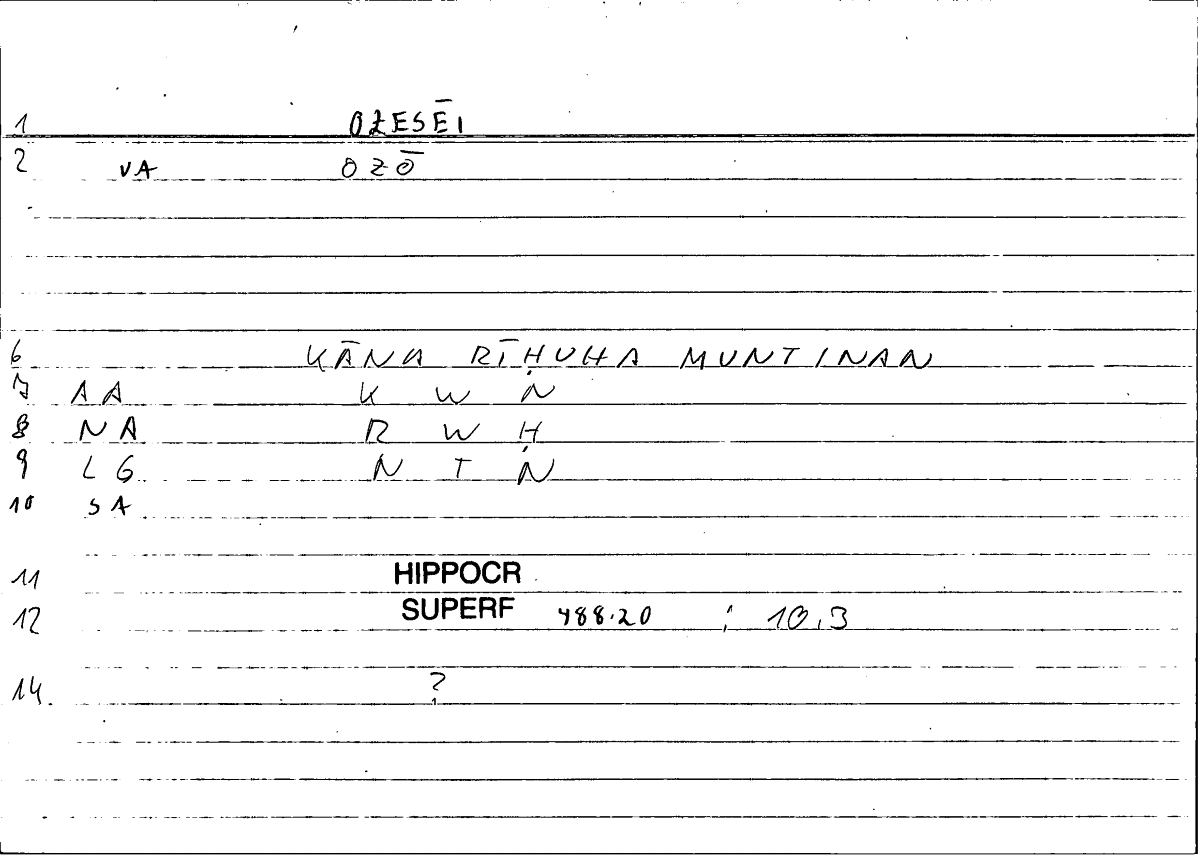 1 OZESĒI
2 VA OZŌ
6 KĀNA RĪḤUHA MUNTINAN
7 AA K W N
8 NA R W Ḥ
9 LG N T Ṇ
10 SA
11 HIPPOCR
12 SUPERF 488.20 ; 10,3
14. ?